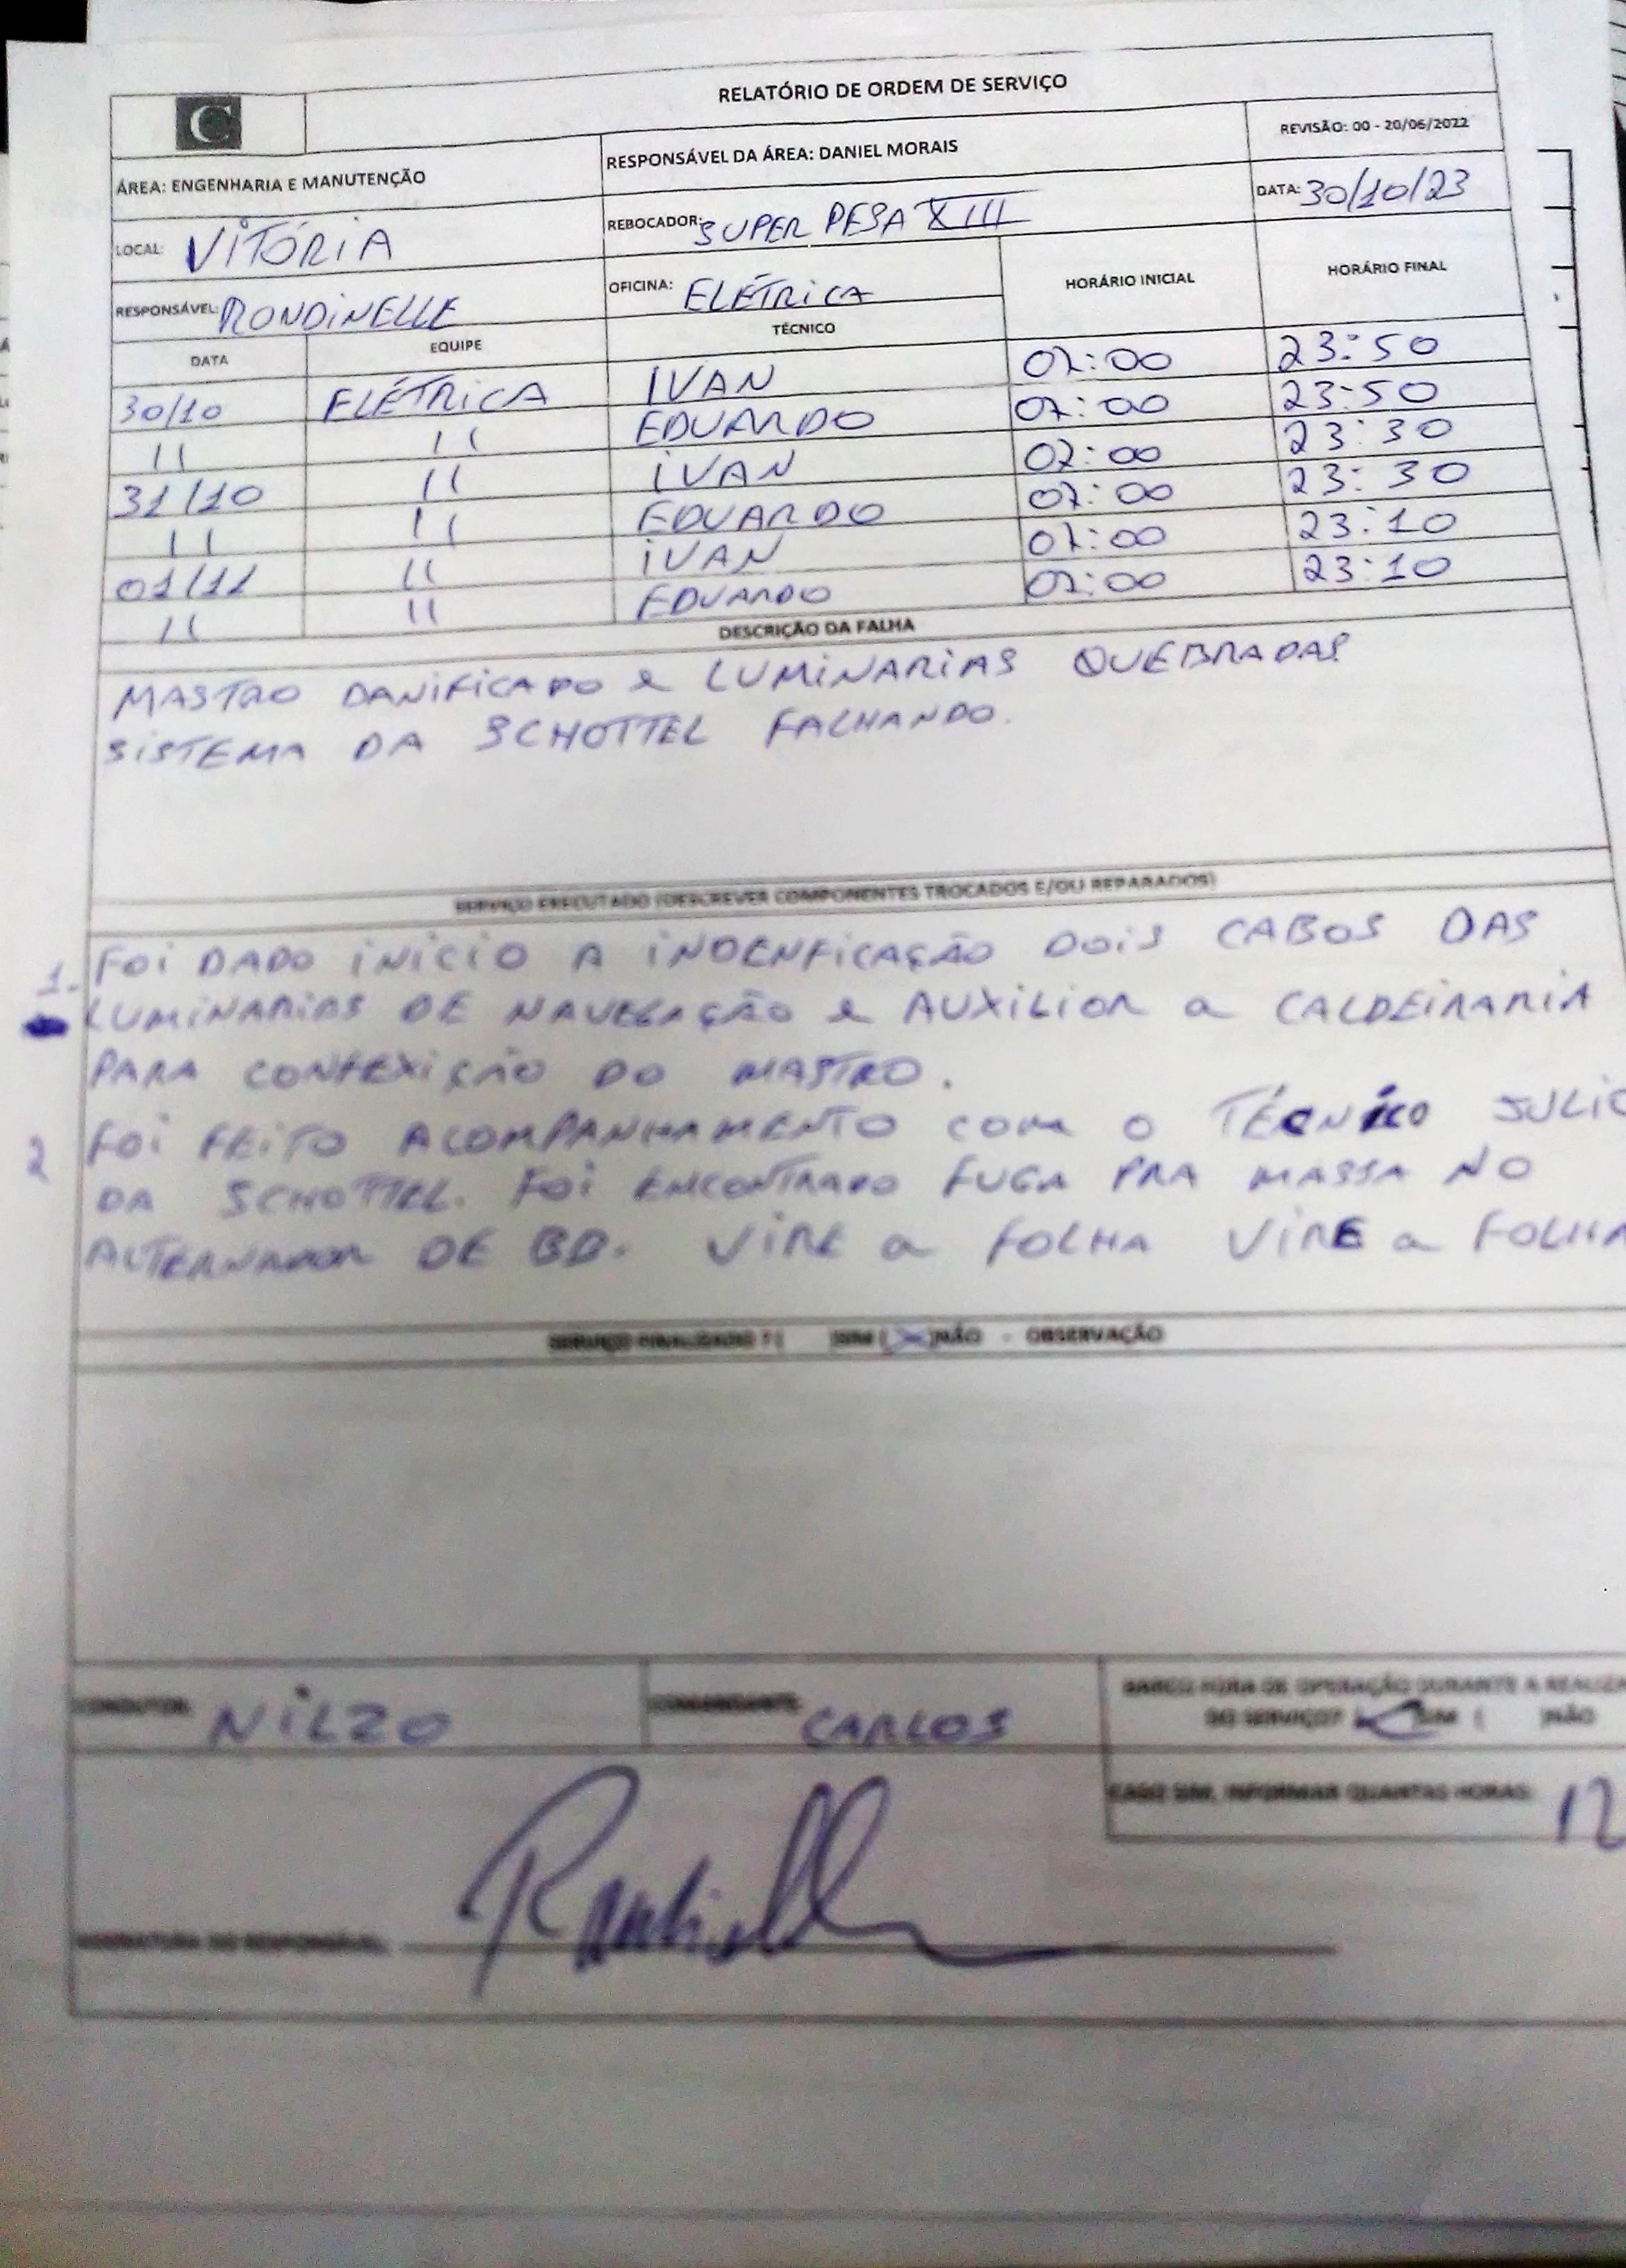 C
RELATÓRIO DE ORDEM DE SERVIÇO
ÁREA: ENGENHARIA E MANUTENÇÃO
RESPONSÁVEL DA ÁREA: DANIEL MORAIS
REVISÃO: 00 - 20/06/2022
LOCAL: VITÓRIA
REBOCADOR: SUPER PESA XIII
DATA: 30/10/23
RESPONSÁVEL: RONDINELLE
OFICINA: ELÉTRICA
HORÁRIO INICIAL
HORÁRIO FINAL
DATA EQUIPE TÉCNICO
30/10 ELÉTRICA IVAN 07:00 23:50
11 11 EDUARDO 07:00 23:50
31/10 11 IVAN 07:00 23:30
11 11 EDUARDO 07:00 23:30
01/11 11 IVAN 07:00 23:10
11 11 EDUARDO 07:00 23:10
DESCRIÇÃO DA FALHA
MASTRO DANIFICADO e LUMINARIAS QUEBRADAS
SISTEMA DA SCHOTTEL FALHANDO.
SERVIÇO EXECUTADO (DESCREVER COMPONENTES TROCADOS E/OU REPARADOS)
1- FOI DADO INICIO A INDENFICAÇÃO DOIS CABOS DAS
LUMINARIAS DE NAVEGAÇÃO e AUXILIOR a CALDEIRARIA
PARA CONFEXIÇÃO DO MASTRO.
2 FOI FEITO ACOMPANHAMENTO com o TÉCNICO JULIO
DA SCHOTTEL. FOI ENCONTRADO FUGA PRA MASSA NO
ALTERNADOR DE BB. VIRE a FOLHA VIRE a FOLHA
SERVIÇO FINALIZADO ? ( )SIM (X)NÃO - OBSERVAÇÃO
CONDUTOR: NILZO
COMANDANTE: CARLOS
BARCO HORA DE OPERAÇÃO DURANTE A REALIZA
DO SERVIÇO? (X)SIM ( )NÃO
CASO SIM, INFORMAR QUANTAS HORAS: 12
ASSINATURA DO RESPONSÁVEL: